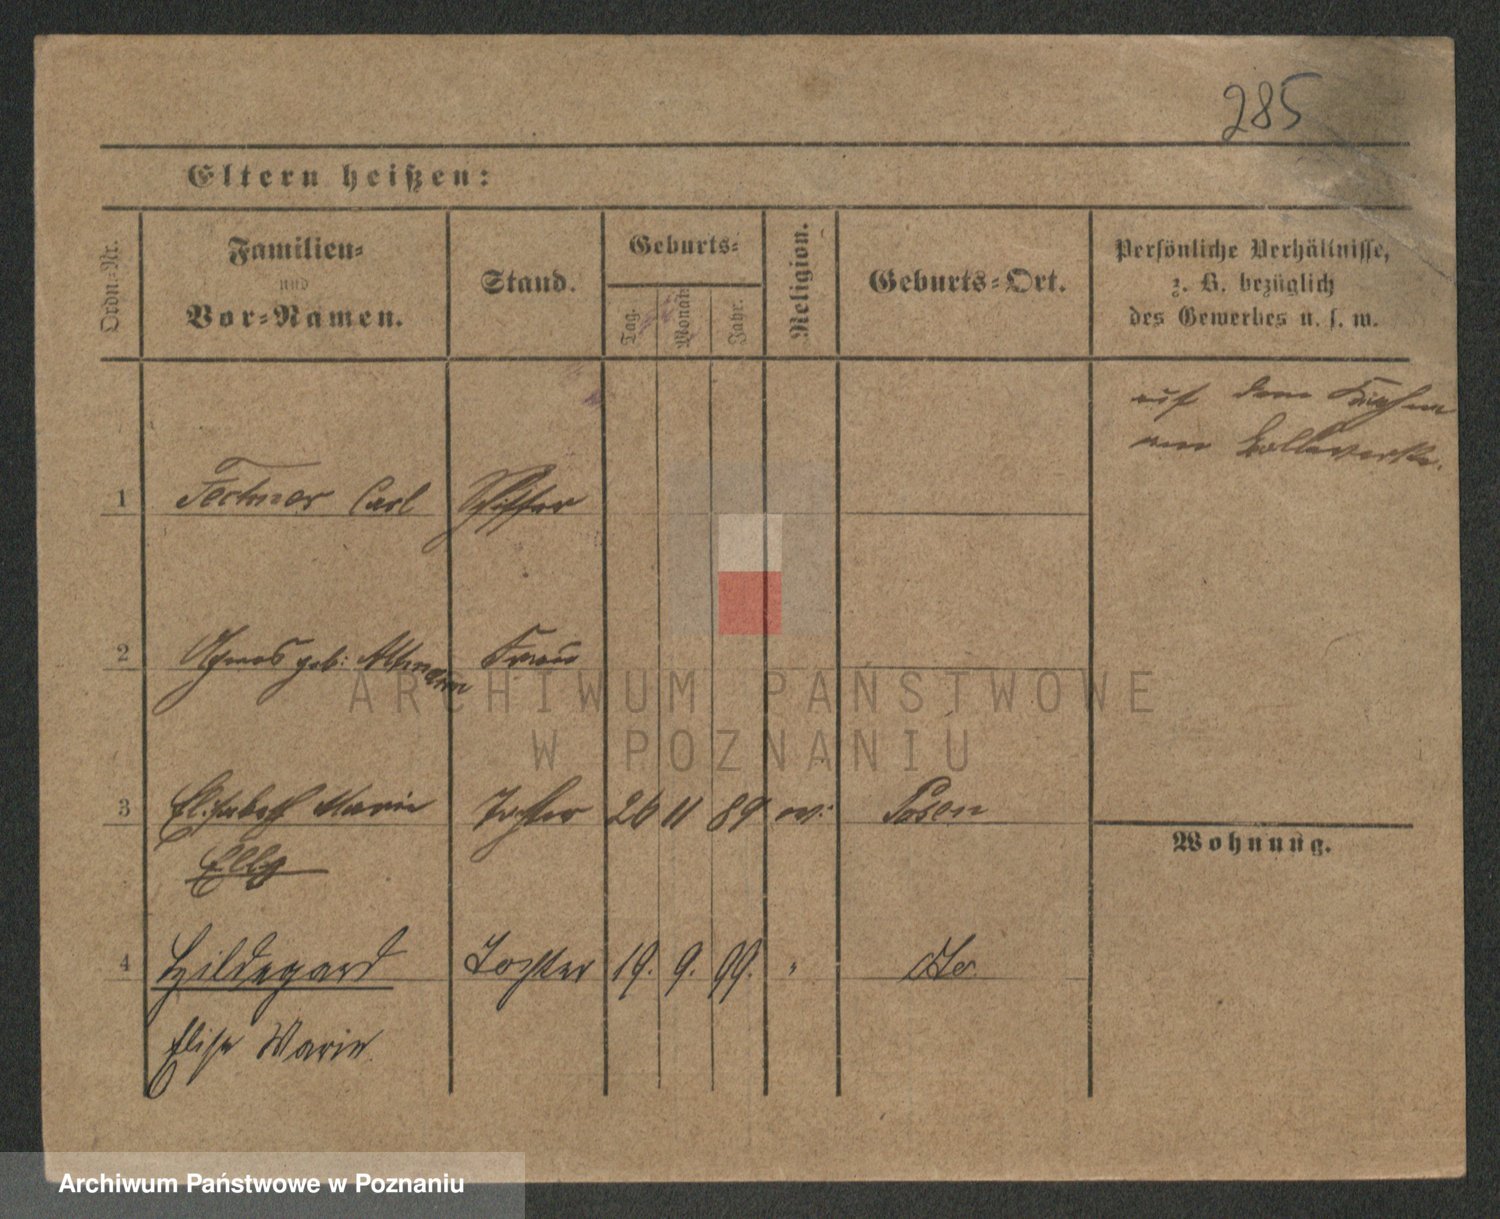 285
Eltern heißen:
Ordn.-Nr.
Familien-
und
Vor-Namen.
Stand.
Geburts-
Tag.
Monat
Jahr.
Religion.
Geburts-Ort.
Persönliche Verhältnisse,
z. B. bezüglich
des Gewerbes u. s. w.
auf dem
am Bollwerk.
1 Fechner Carl Schiffer
2 Agnes geb: Altmann Frau
ARCHIWUM PAŃSTWOWE
W POZNANIU
3 Elisabeth Marie Tochter 26 11 89 ev: Posen
Elly
Wohnung.
4 Hildegard Tochter 19. 9. 99. " do
Elise Marie
Archiwum Państwowe w Poznaniu